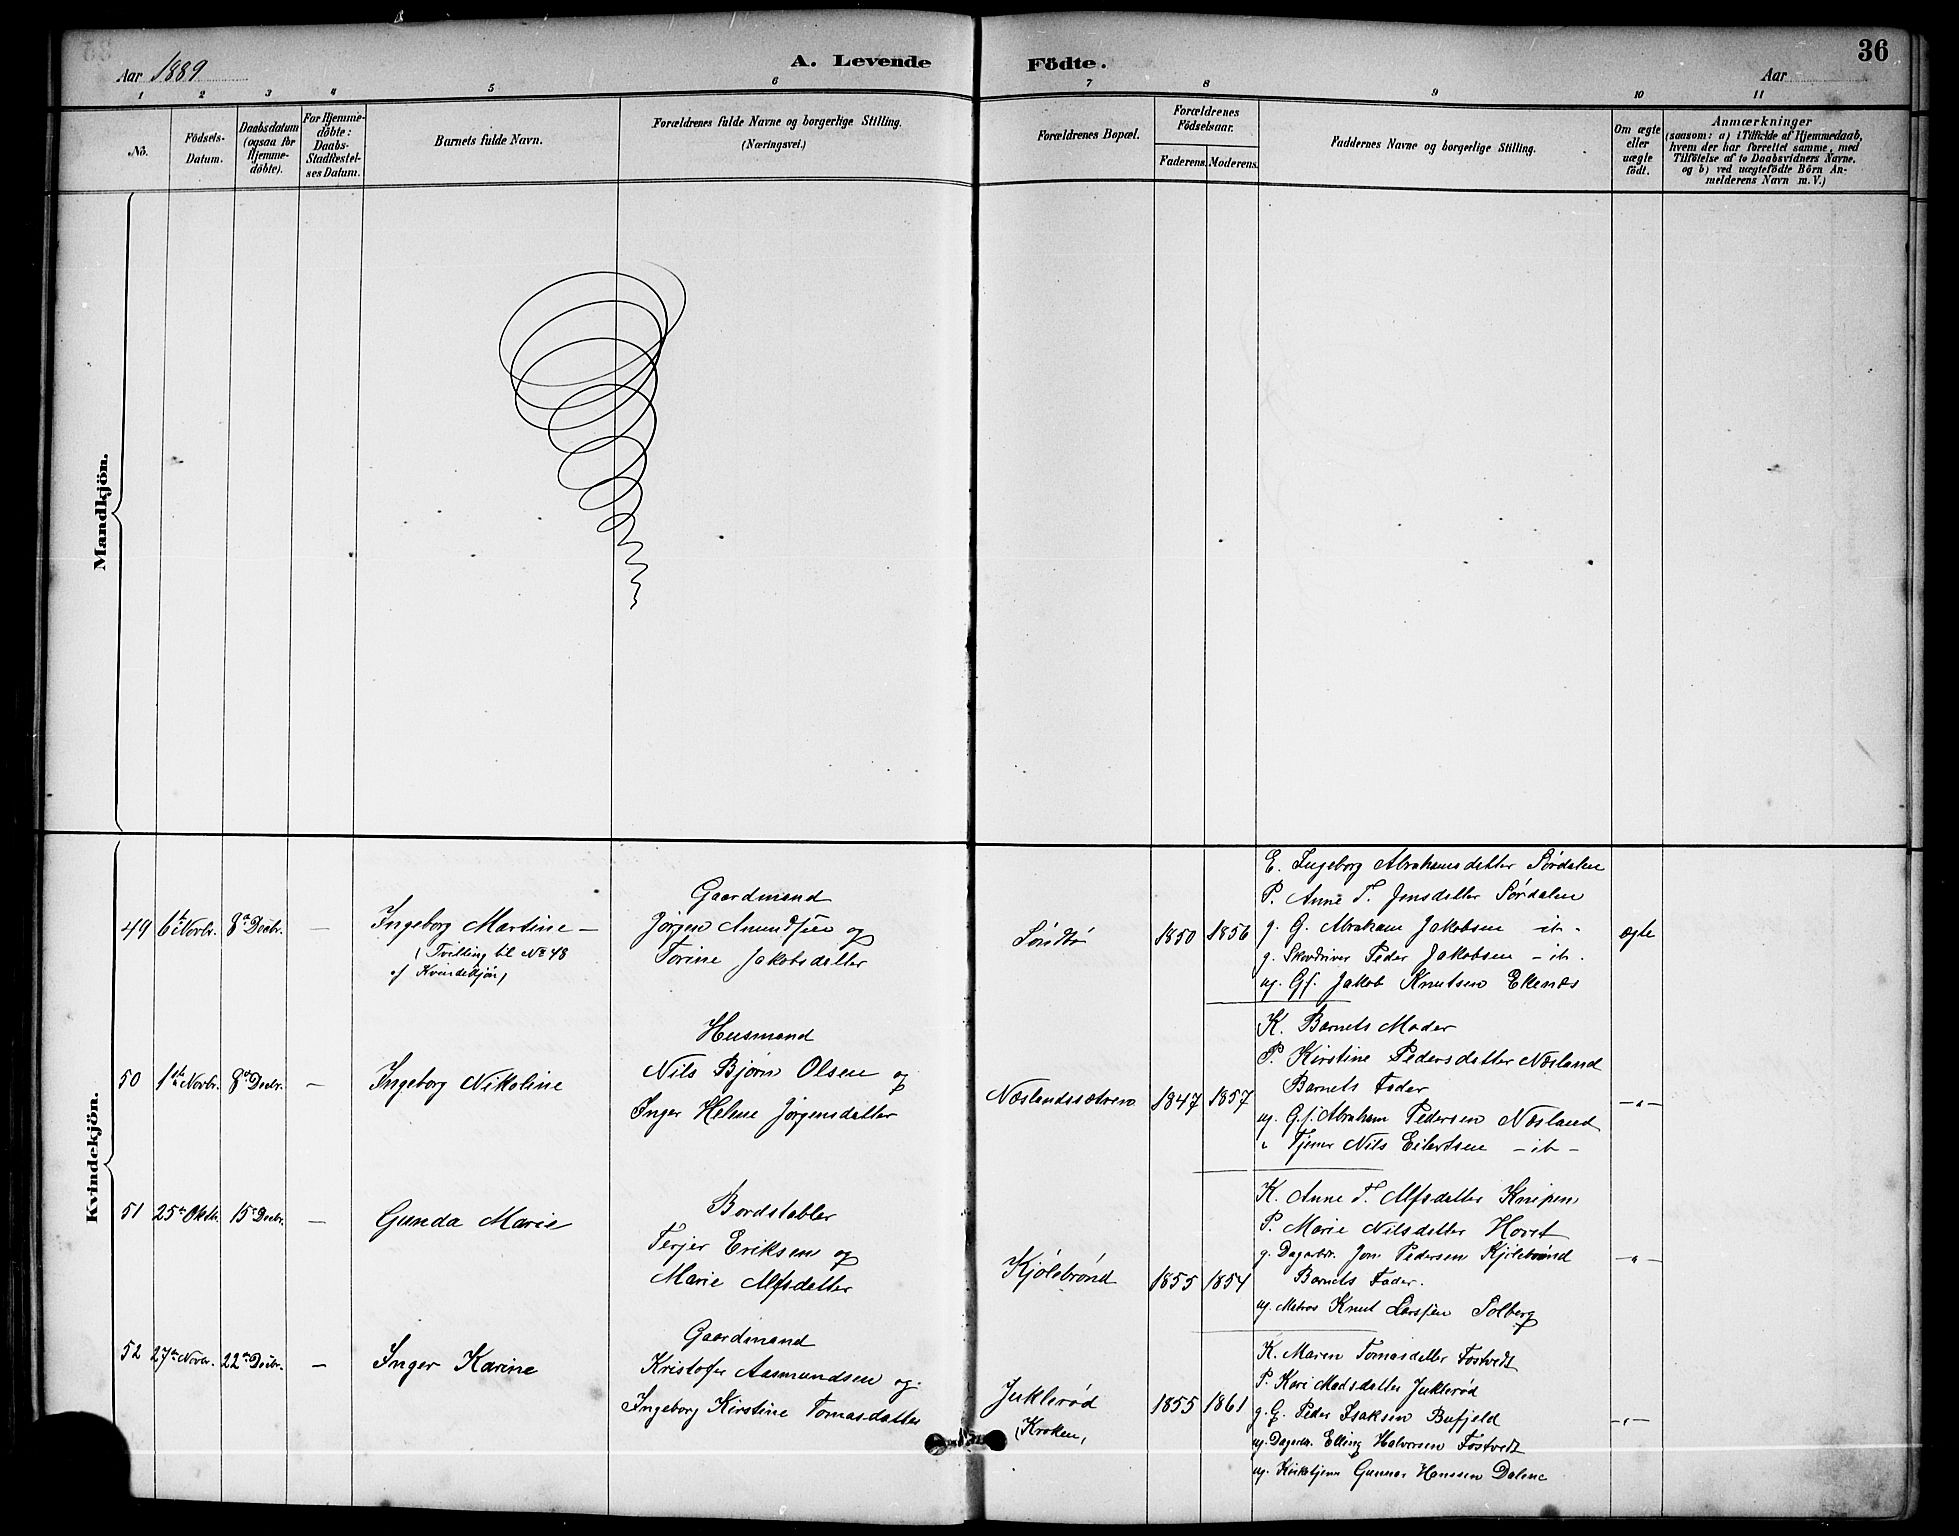 Aar 1889
A. Levende Födte.
Aar
36
1 2 3 4 5 6 7 8 9 10 11
No.
Födsels-Datum.
Daabsdatum (ogsaa for Hjemme-döbte).
For Hjemme-döbte: Daabs-Stadfæstel-ses Datum.
Barnets fulde Navn.
Forældrenes fulde Navne og borgerlige Stilling.
(Næringsvei.)
Forældrenes Bopæl.
Forældrenes Födselsaar.
Faderens. Moderens.
Faddernes Navne og borgerlige Stilling.
Om ægte eller uægte födt.
Anmærkninger
(saasom: a) i Tilfælde af Hjemmedaab, hvem der har forrettet samme, med Tilföielse af to Daabsvidners Navne. og b) ved uægtefödte Börn An-melderens Navn m. V.)
Mandkjön.
Kvindekjön.
49 6te Novbr. 8de Decbr. — Ingeborg Martine —
(Tvilling til No 48
af Kvindekjön)
Gaardmand
Jørgen Amundsen og
Torine Jakobsdatter
1850 1856
E. Ingeborg Abrahamsdatter Sørdalen
P. Anne T. Jensdatter Sørdalen
g. G. Abraham Jakobsen — it -
g. Skovdriver Peder Jakobsen — it -
ug. Gf. Jakob Knutsen Ekenæs
ægte
50 1ste Novbr. 8de Decbr. — Ingeborg Nikoline
Husmand
Nils Bjørn Olsen og
Inger Helene Jørgensdatter
Næslandssætren 1847 1857
K. Barnets Moder
P. Kirstine Pedersdatter Næsland
Barnets Fader
ug. G.f. Abraham Pedersen Næsland
" Tjener Nils Eilertsen — it —
— " —
51 25de Oktbr. 15de Decbr. — Gunda Marie
Bordstabler
Terjer Eriksen og
Marie Alfsdatter
Kjølebrønd 1855 1854
K. Anne T. Alfsdatter Knipen
P. Marie Nilsdatter Hovet
g. Dagarb. Jon Pedersen Kjølebrønd
Barnets Fader.
ug. Matros Knut Larssen Solberg
— " —
52 27de Novbr. 22de Decbr. — Inger Karine
Gaardmand
Kristofer Aasmundsen og
Ingeborg Kirstine Tomasdatter
Juklerød
(Kroken)
1855 1861
K. Maren Tomasdatter Fostvedt
P. Kari Madsdatter Juklerød
g. G. Peder Isaksen Bufjeld
ug. Dagarb. Elling Halvorsen Fostvedt
ug. Kirketjener Gunnar Hanssen Dalene
— " —